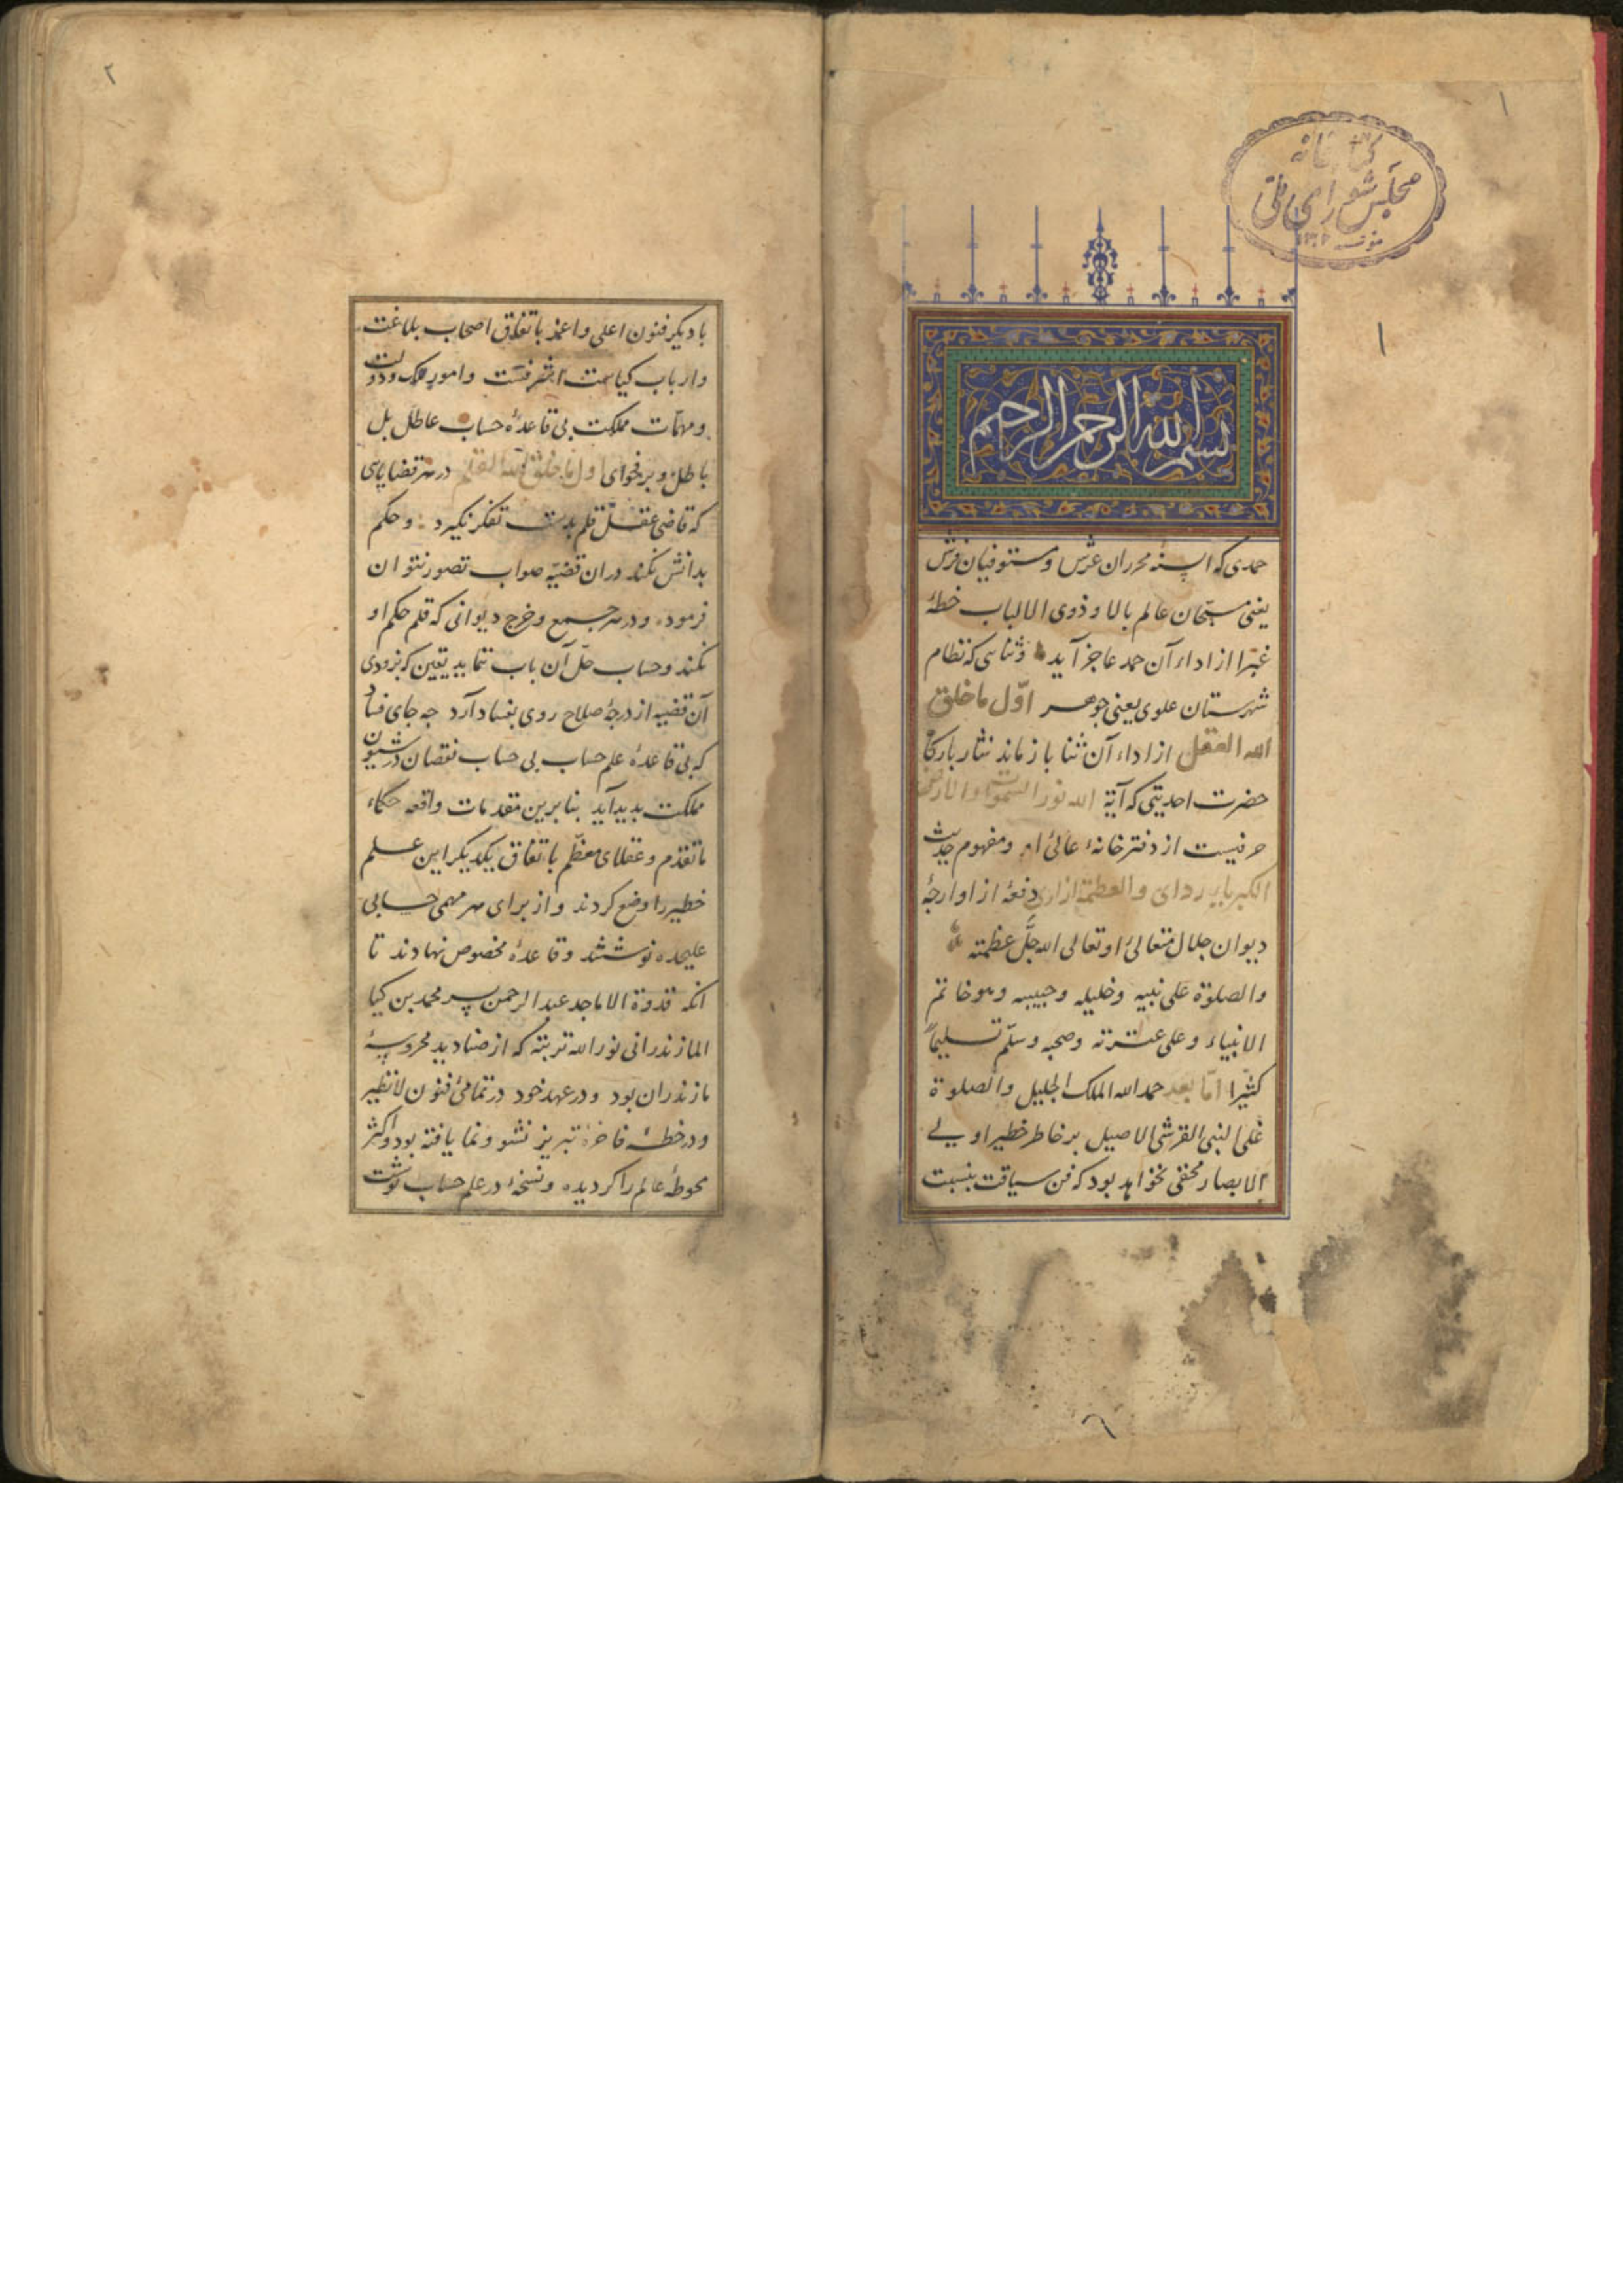 ۱
کتابخانه
مجلس شورای ملی
۱
بسم الله الرحمن الرحیم
حمدی که السنهٔ محرران عرش و مستوفیان فرش
یعنی مسبّحان عالم بالا و ذوی الالباب خطهٔ
غبرا از اداء آن حمد عاجز آید و ثنائی که نظام
شهرستان علوی یعنی جوهر اوّل ما خلق
الله العقل از اداء آن ثنا باز ماند نثار بارگاه
حضرت احدیتی که آیة الله نور السموات والارض
حرفیست از دفترخانهٔ عالئ او و مفهوم حدیث
الکبریاء ردای والعظمة ازاری دفعهٔ از اوارجهٔ
دیوان جلال متعالئ او تعالی الله جلّ عظمته
والصلوة علی نبیه وخلیله وحبیبه وهو خاتم
الانبیاء وعلی عترته وصحبه وسلّم تسلیماً
کثیرا امّا بعد حمد الله الملک الجلیل والصلوة
علی النبی القرشی الاصیل بر خاطر خطیر اولی
الابصار مخفی نخواهد بود که فن سیاقت بنسبت
۲
با دیگر فنون اعلی و اعم باتفاق اصحاب بلاغت
و ارباب کیاست اشرفست و امور ملک و دولت
و مهمّات مملکت بی قاعدهٔ حساب عاطل بل
باطل و بر فحوای اول ما خلق الله القلم در هر قضایای
که قاضی عقل قلم بدست تفکر نگیرد و حکم
بدانش نکند در ان قضیّه صواب تصور نتوان
فرمود و در هر جمع و خرج دیوانی که قلم حکم او
نکند و حساب حلّ آن باب ننماید یقین که بزودی
آن قضیه از درجهٔ صلاح روی بفساد آرد چه جای فساد
که بی قاعدهٔ علم حساب بی حساب نقصان در شیون
مملکت بدید آید بنا برین مقدمات واقعه حکماء
ماتقدّم و عقلای معظّم باتفاق یکدیگر این علم
خطیر را وضع کردند و از برای هر مهمی حسابی
علیحده نوشتند و قاعدهٔ مخصوص نهادند تا
انکه قدوة الاماجد عبد الرحمن پسر محمد بن کیا
المازندرانی نور الله تربته که از صنادید محروسهٔ
مازندران بود و در عهد خود در تمامئ فنون لانظیر
و در خطهٔ فاخرهٔ تبریز نشو و نما یافته بود و اکثر
محوطهٔ عالم را گردیده و نسخهٔ در علم حساب نوشت